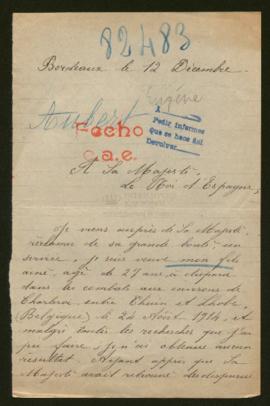 82483
Bordeaux le 12 Décembre
Eugène
Aubert
Hecho
c.a.e.
A
Pedir informes
que se hace fué.
Devolver
A Sa Majesté
Le Roi d'Espagne,
Je viens auprès de Sa Majesté
réclamer de sa grande bonté un
service, je suis veuve mon fils
ainé, agé de 27 ans a disparu
dans les combats aux environs de
Charleroi entre Thuin et Lobbe,
(Belgique) le 24 Août 1914, et
malgré toutes les recherches que j'ai
pu faire, je n'ai obtenu aucun
resultat. Ayant appris que Sa
Majesté avait retrouvé des disparus